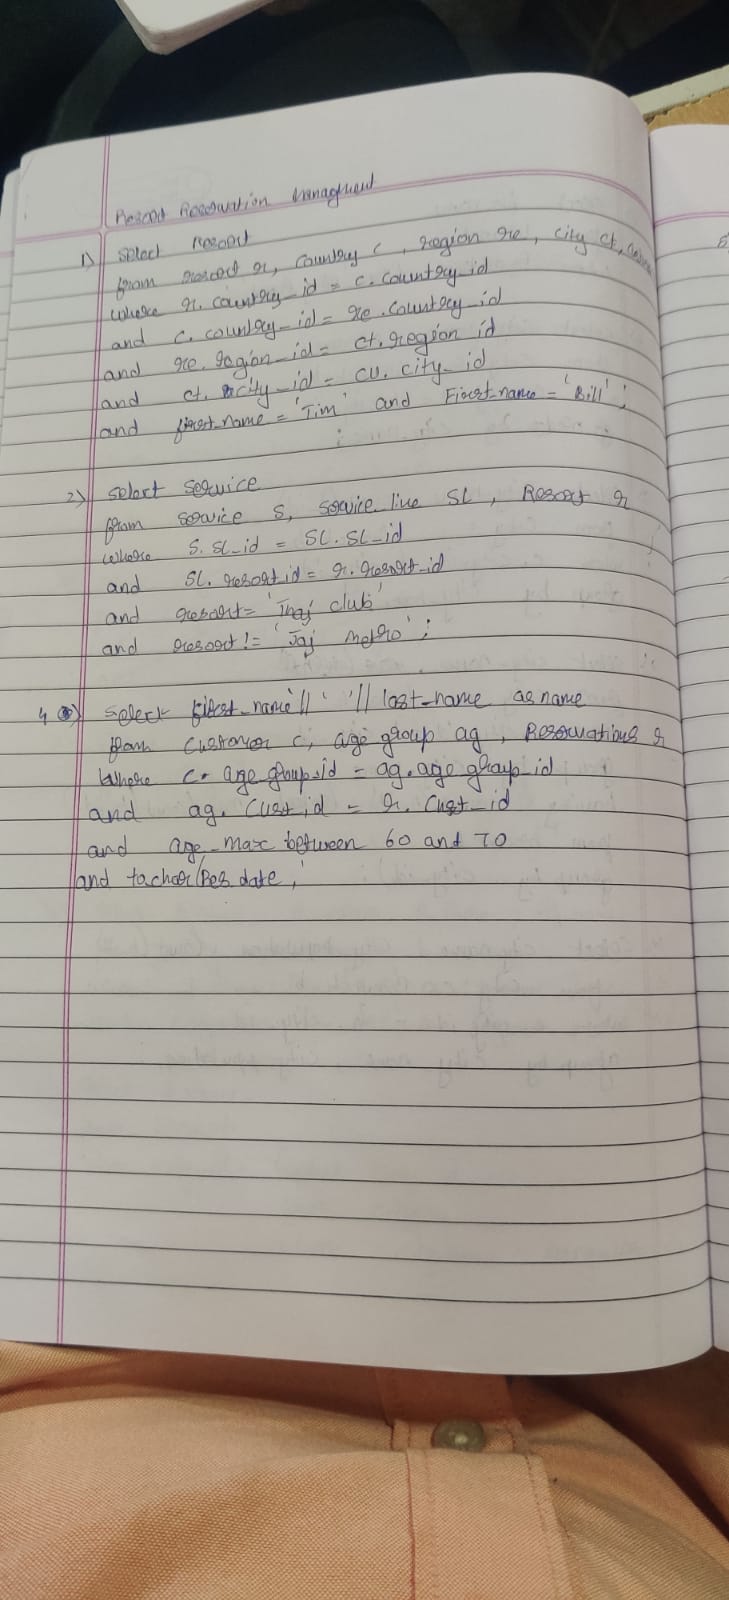 Resort Reservation Managment
1) select Resort
from resort r, country c, region re, city ct,
where r. country_id = c. country_id
and c. country_id = re. country_id
and re. region_id = ct. region id
and ct. city_id = cu. city_id
and first_name = 'Tim' and First_name = 'Bill';
2) select service
from service s, service line SL, Resort r
where s. SL_id = SL. SL_id
and SL. resort id = r. resort_id
and resort = 'Taj club'
and resort != 'Taj Metro';
4 select first_name || ' ' || last_name as name
from Customer c, age group ag, Reservations r
where c. age group_id = ag. age group_id
and ag. Cust_id = r. Cust_id
and age_max between 60 and 70
and tochar (Res. date,